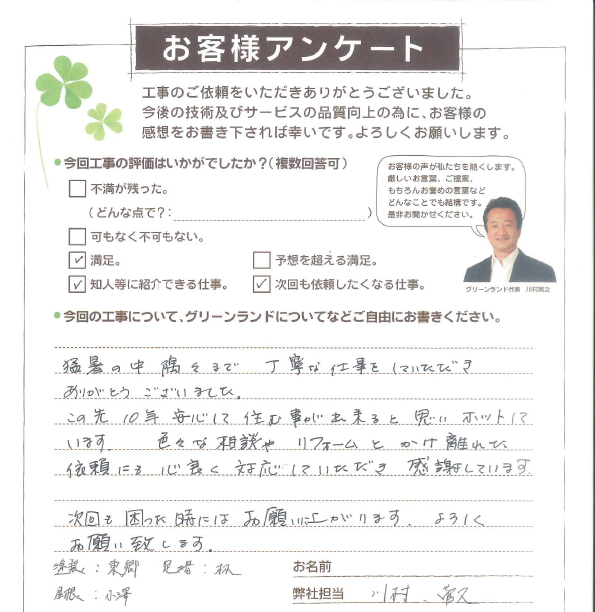 お客様アンケート
工事のご依頼をいただきありがとうございました。
今後の技術及びサービスの品質向上の為に、お客様の
感想をお書き下されば幸いです。よろしくお願いします。
今回工事の評価はいかがでしたか？（複数回答可）
不満が残った。
（どんな点で？：　）
可もなく不可もない。
満足。
予想を超える満足。
知人等に紹介できる仕事。
次回も依頼したくなる仕事。
お客様の声が私たちを熱くします。
厳しいお言葉、ご提案、
もちろんお誉めの言葉など
どんなことでも結構です。
是非お聞かせください。
グリーンランド代表　川村高之
今回の工事について、グリーンランドについてなどご自由にお書きください。
猛暑の中 隅々まで 丁寧な仕事をしていただき
ありがとうございました。
この先10年安心して住む事が出来ると思いホットして
います。 色々な相談や リフォームとかけ離れた
依頼にも心良く対応していただき 感謝しています。
次回も困った時にはお願いに上がります。よろしく
お願い致します。
塗装：東郷 足場：林
屋根：小澤
お名前
弊社担当 川村